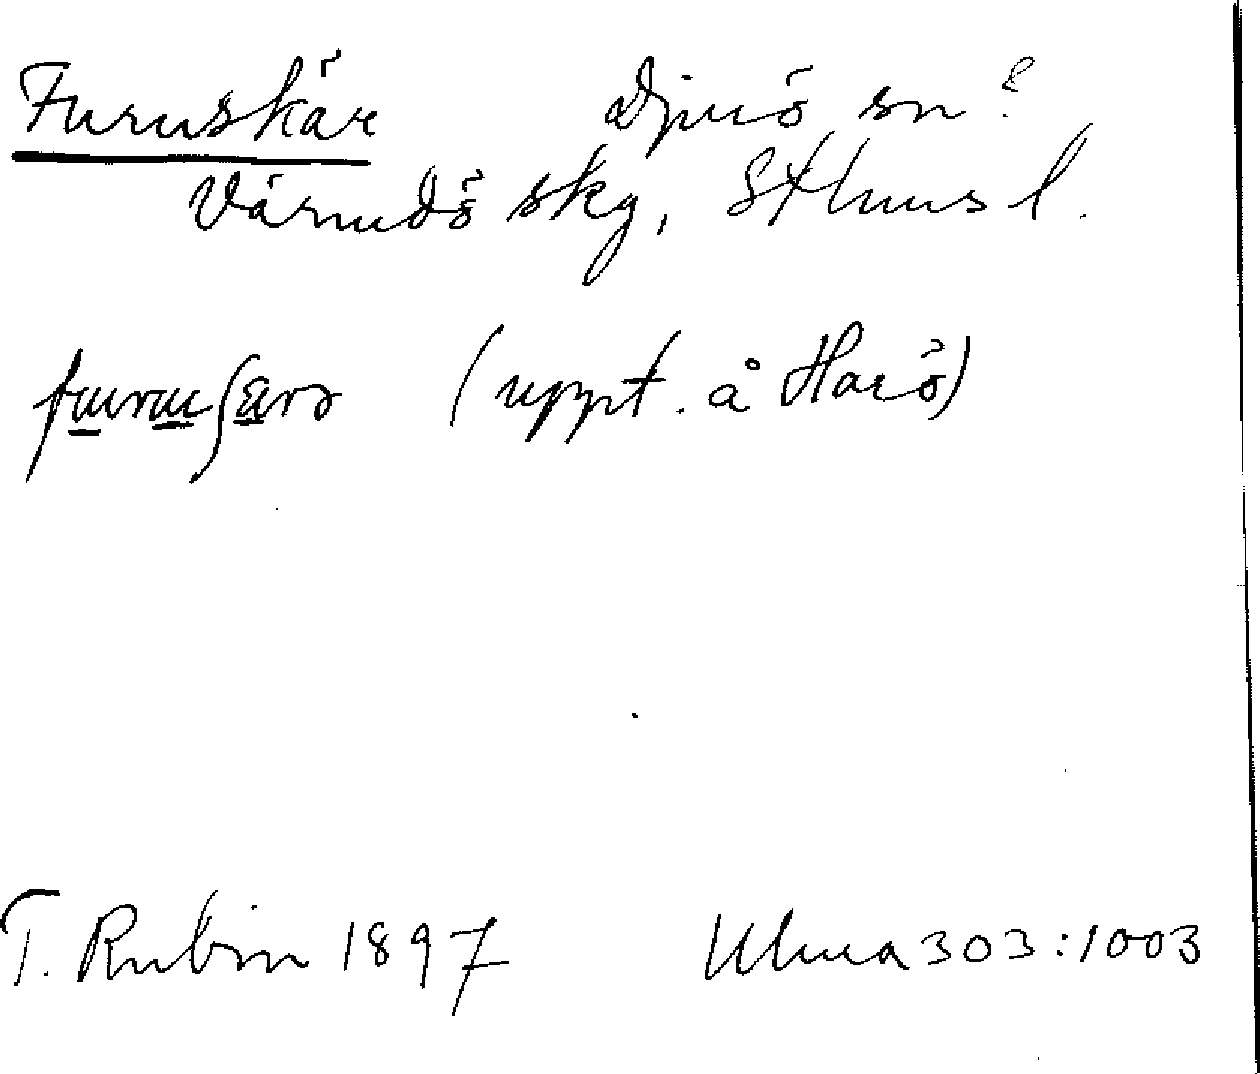 Furuskär Djurö sn?
Värmdö skg, Sthms l.
(uppt. å Harö)
T. Rubin 1897 Ulma 303:1003